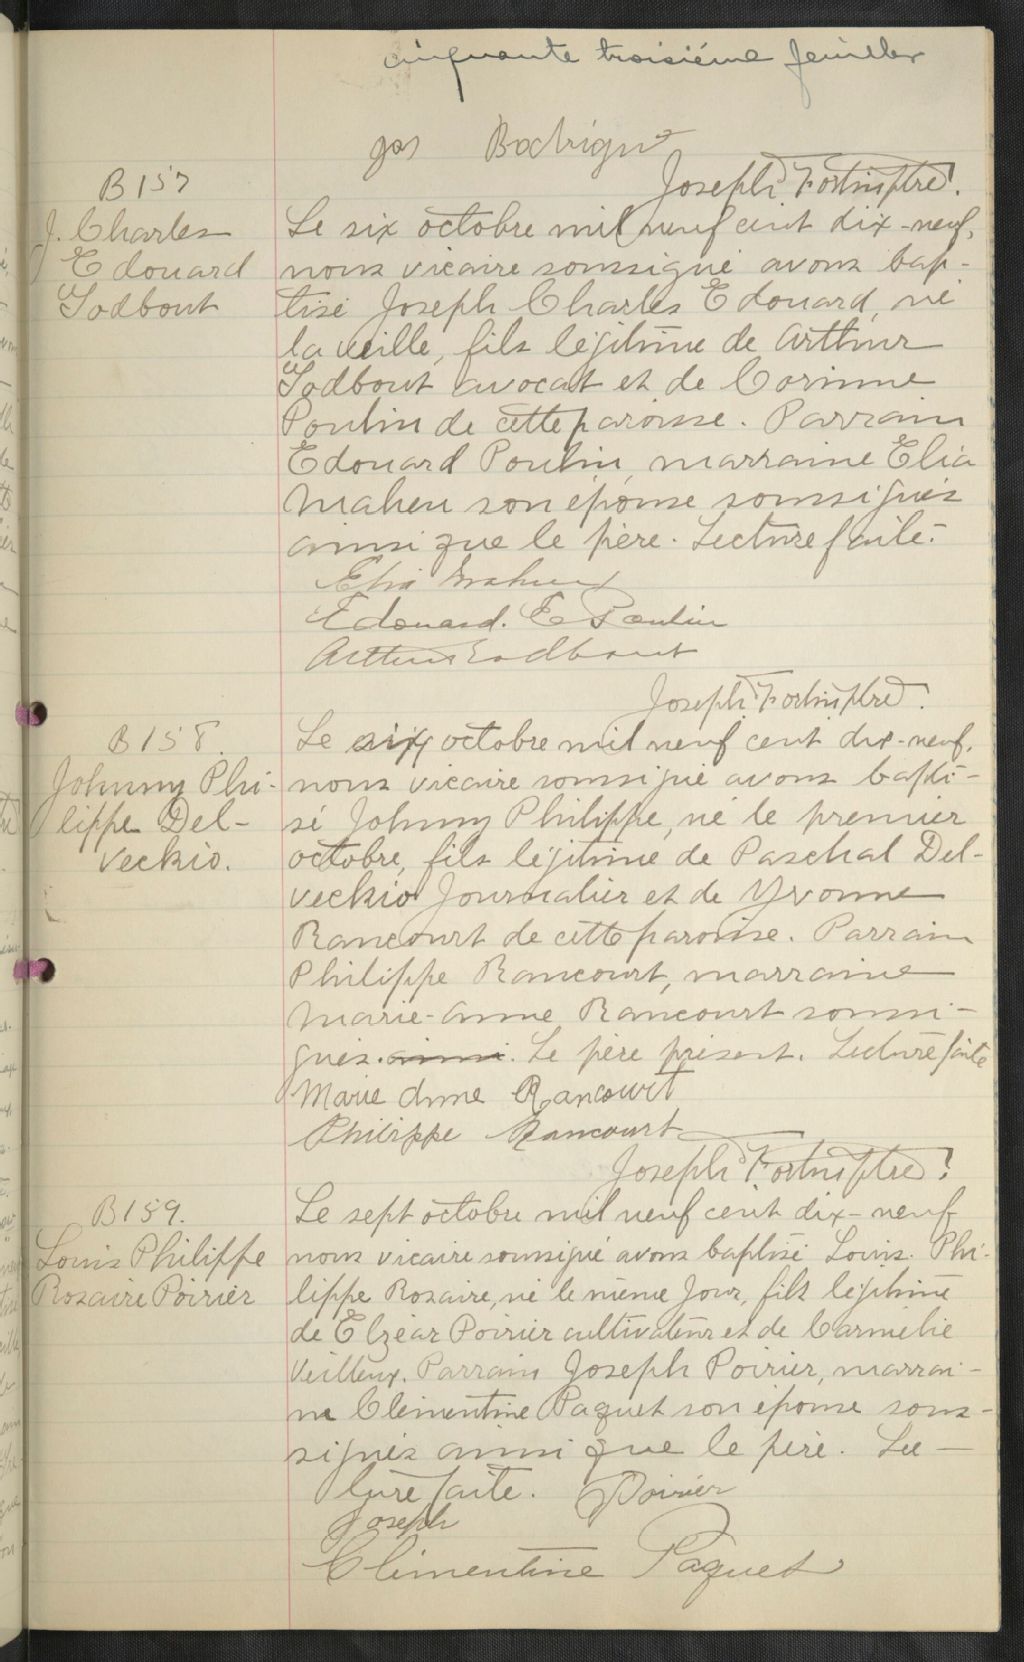 cinquante troisième feuillet
Jos Rodrigue
Joseph Fortin ptre.
B 157
J. Charles
Edouard
Godbout
Le six octobre mil neuf cent dix-neuf,
nous vicaire soussigné avons bap-
tisé Joseph Charles Edouard, né
la veille, fils légitime de Arthur
Godbout avocat et de Corinne
Poulin de cette paroisse. Parrain
Edouard Poulin, marraine Elia
Maheu son épouse soussignés
ainsi que le père. Lecture faite.
Elia Maheu
Edouard. E Poulin
Arthur Godbout
Joseph Fortin ptre.
B 158.
Johnny Phi-
lippe Del-
veckio.
Le six octobre mil neuf cent dix-neuf,
nous vicaire soussigné avons bapti-
sé Johnny Philippe, né le premier
octobre, fils légitime de Paschal Del-
veckio Journalier et de Yvonne
Rancourt de cette paroisse. Parrain
Philippe Rancourt, marraine
Marie-Anne Rancourt soussi-
gnés. ainsi. Le père présent. Lecture faite
Marie Anne Rancourt
Philippe Rancourt
Joseph Fortin ptre.
B 159.
Louis Philippe
Rosaire Poirier
Le sept octobre mil neuf cent dix-neuf
nous vicaire soussigné avons baptisé Louis. Phi-
lippe Rosaire, né le même jour, fils légitime
de Elzéar Poirier cultivateur et de Carmélie
Veilleux. Parrain Joseph Poirier, marrai-
ne Clémentine Paquet son épouse sous-
signés ainsi que le père. Lec-
ture faite.
Joseph Poirier
Clémentine Paquet